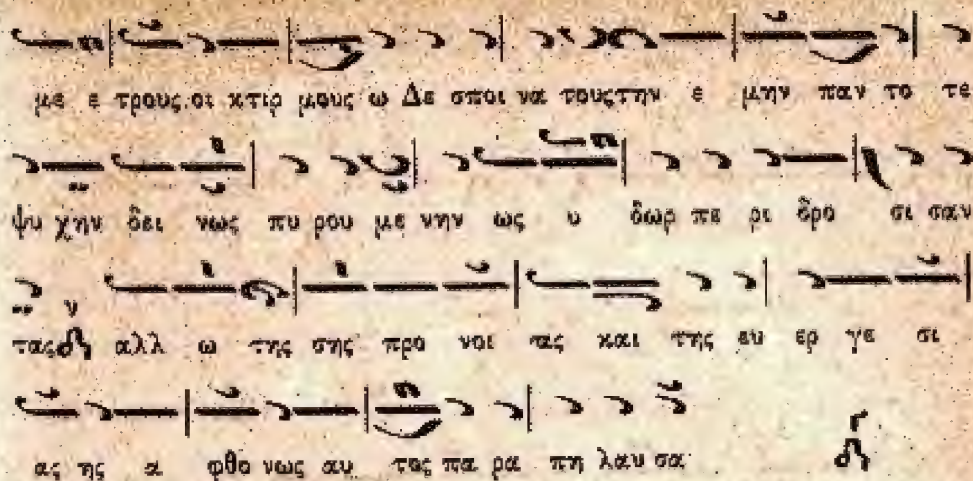 με ε τρους οι κτιρ μους ω Δε σποι να τους την ε μην παν το τε
ψυ χην δει νως πυ ρου με νην ως υ δωρ πε ρι δρο σι σαν
τας αλλ ω της σης προ νοι ας και της ευ ερ γε σι
ας ης α φθο νως αυ τος πα ρα πη λαυ σα